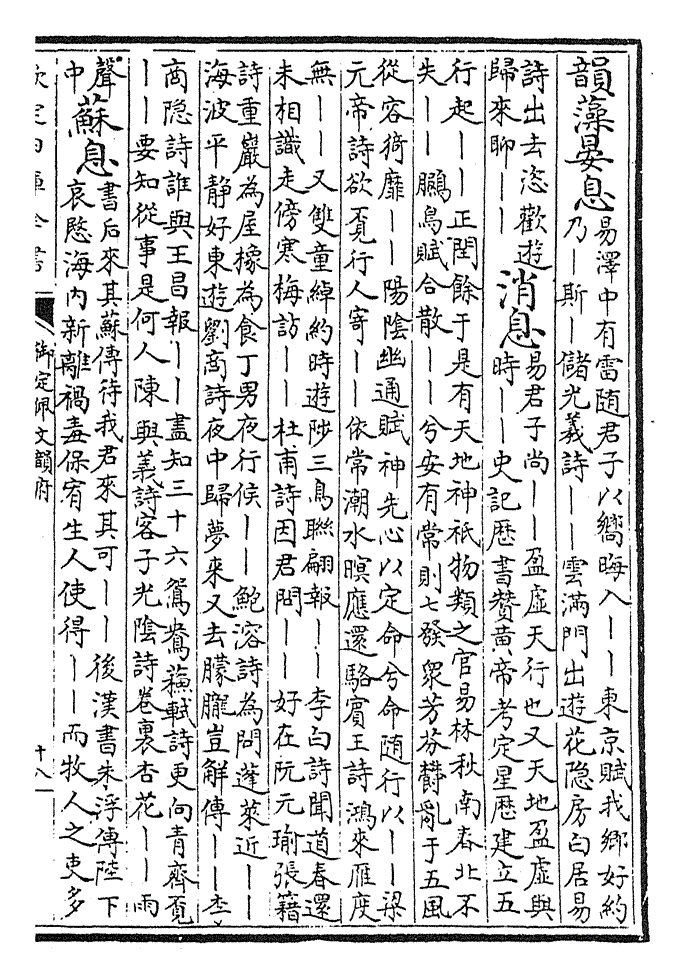 韻藻晏息易澤中有雷随君子以嚮晦入——東京賦我鄉好約
乃—斯—儲光羲詩——雲滿門出遊花隐房白居易
詩出去恣歡遊
歸來聊——
消息易君子尚——盈虛天行也又天地盈虛與
時——史記歷書贊黄帝考定星歷建立五
行起——正閏餘于是有天地神祇物類之官易林秋南春北不
失——鵩鳥賦合散——兮安有常則七發衆芳芬欝亂于五風
從容猗靡——陽陰幽通賦神先心以定命兮命随行以——梁
元帝詩欲覓行人寄——依常潮水暝應還駱賓王詩鴻來雁度
無——又雙童綽約時遊陟三鳥聯翩報——李白詩聞道春還
未相識走傍寒梅訪——杜甫詩因君問——好在阮元瑜張籍
詩重巖為屋橡為食丁男夜行候——鮑溶詩為問蓬萊近——
海波平静好東遊劉商詩夜中歸夢來又去朦朧豈解傳——李
商隐詩誰與王昌報——盡知三十六鴛鴦蘇軾詩更向青齊覓
——要知從事是何人陳與義詩客子光陰詩卷裏杏花——雨
聲
中
蘇息書后來其蘇傳待我君來其可——後漢書朱浮傳陸下
哀愍海内新離禍毒保宥生人使得——而牧人之吏多
欽定四庫全書
御定佩文韻府
十八